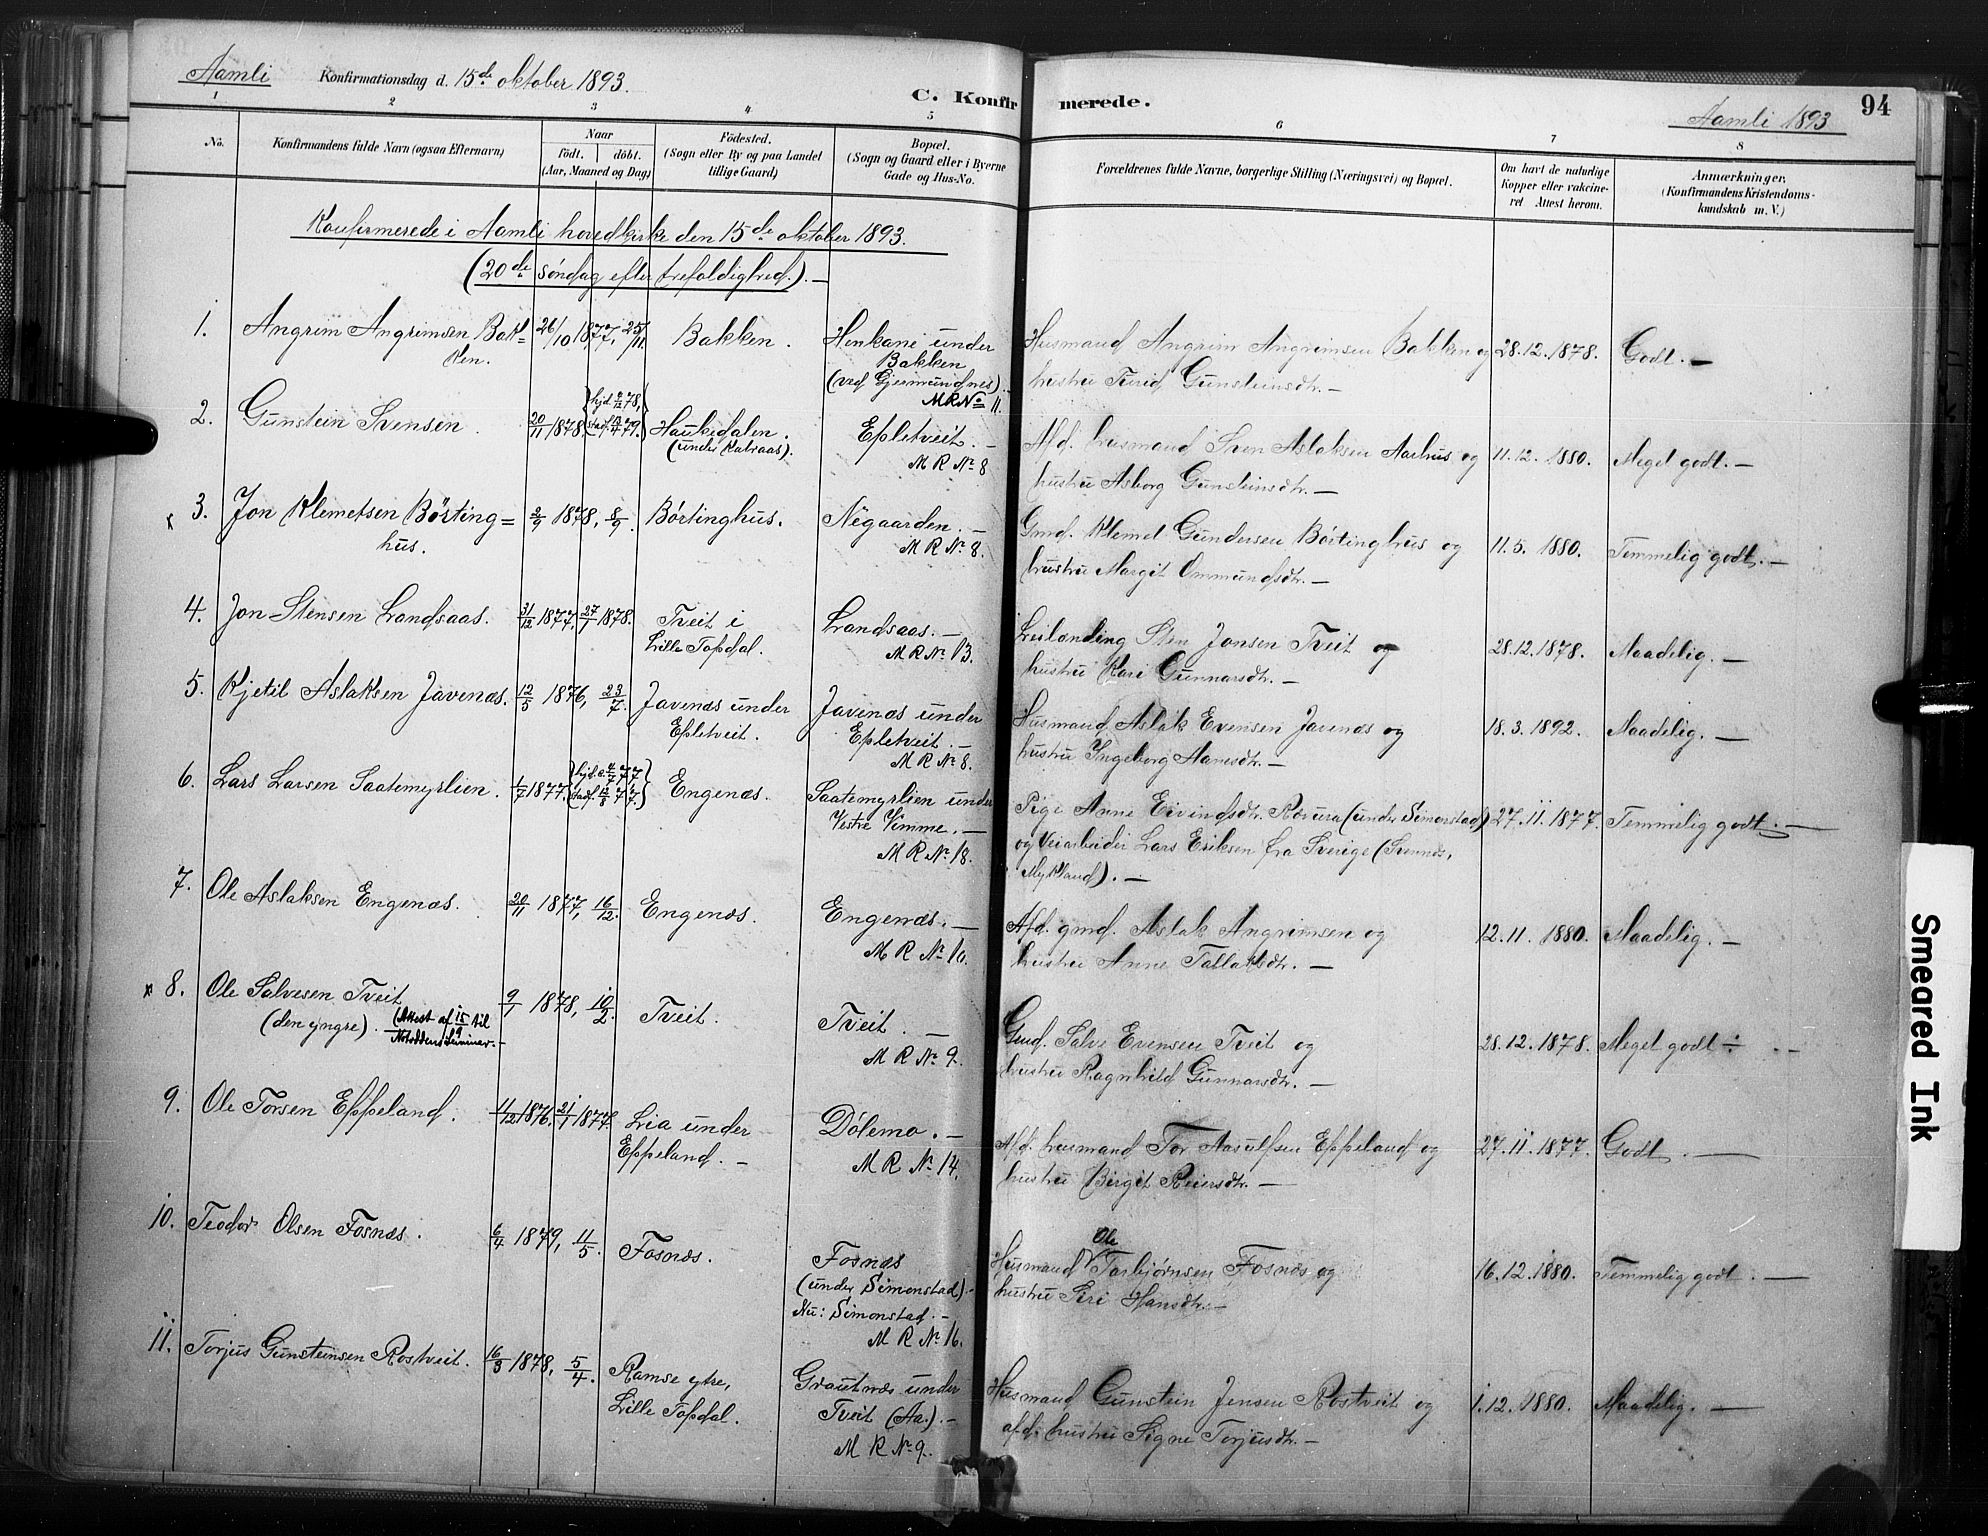 Aamli Konfirmationsdag d. 15de oktober 1893.
C. Konfirmerede.
94
Aamli 1893
1 2 3 4 5 6 7 8
No.
Konfirmandens fulde Navn (ogsaa Efternavn)
Naar
født. døbt.
(Aar, Maaned og Dag)
Födested.
(Sogn eller By og paa Landet
tillige Gaard)
Bopæl.
(Sogn og Gaard eller i Byerne
Gade og Hus-No.
Forældrenes fulde Navne, borgerlige Stilling (Næringsvei) og Bopæl.
Om havt de naturlige
Kopper eller vakcine-
ret Attest herom.
Anmærkninger,
(Konfirmandens Kristendoms-
kundskab m. V.)
Konfirmerede i Aamli hovedkirke den 15de oktober 1893.
(20de søndag efter trefoldighed.). —
1. Angrim Angrimsen Bak= 26/10 1877, 25/11. Bakken. Henkane under Husmand Angrim Angrimsen Bakken og 28.12.1878. Godt. —
ken. Bakken hustru Turid Gunsteinsdtr. —
(ved Gjermundnes). —
M R No 11.
2. Gunstein Svensen. 20/11 1878, {hjd. 2/12 78, stadf. 13/4 79.} Haukedalen. Epletveit. — Afd. husmand Sven Aslaksen Aarhus og 11.12. 1880. Meget godt. —
M R Nr 8 hustru Asborg Gunsteinsdtr. —
3. Jon Klemetsen Børting= 2/9 1878, 8/9. Børtinghus. Negaarden. — Gmd. Klemet Gundersen Børtinghus og 11.5. 1880. Temmelig godt. —
hus. M R Nr 8. hustru Margit Ommundsdtr. —
4. Jon Stensen Landsaas. 31/12 1877, 27/1 1878. Tveit i Landsaas. — Leilænding Sten Jonsen Tveit og 28.12.1878. Maadelig. —
Lille Topdal. M R Nr 13. hustru Kari Gunnarsdtr. —
5. Kjetil Aslaksen Javenæs. 12/5 1876, 23/7. Javenæs under Javenæs under Husmand Aslak Evensen Javenæs og 18.3.1892. Maadelig. —
Epletveit. Epletveit. — hustru Ingeborg Hansdtr. —
M R Nr 8.
6. Lars Larsen Saatemyrlien. 1/7 1877, {hjd. d. 4/7 77 stadf. 12/8 77.} Engenæs. Saatemyrlien under Pige Anne Eivindsdtr. (under Simonstad) 27.11.1877. Temmelig godt. —
Vestre Vimme. — og Veiarbeider Lars Eriksen fra Sverige (Svennes,
M R Nr 18. Mykland). —
7. Ole Aslaksen Engenæs. 20/11 1877, 16/12. Engenæs. Engenæs. — Afd. gmd. Aslak Angrimsen og 12.11. 1880. Maadelig. —
M R Nr 10. hustru Anne Tallaksdtr. —
8. Ole Salvesen Tveit 9/1 1878, 10/2. Tveit. Tveit. — Gmd. Salve Evensen Tveit og 28.12.1878. Meget godt ÷
(den yngre). (Attest af 15/9 til M R Nr 9. hustru Ragnhild Gunnarsdtr. —
Notoddens Seminar. —
9. Ole Torsen Eppeland. 11/12 1876, 21/1 1877. Lia under Dølemo. — Afd. husmand Tor Aasulfsen Eppeland og 27.11.1877. Godt. —
Eppeland. — M R Nr 14. hustru Birgit Reiersdtr. —
10. Teodor Olsen Fosnæs. 6/4 1879, 11/5. Fosnæs. Fosnæs Husmand Ole Torbjørnsen Fosnæs og 16.12.1880. Temmelig godt. —
(under Simonstad). — hustru Siri Hansdtr. —
Nu: Simonstad. —
M R Nr 16.
11. Torjus Gunsteinsen Rostveit. 16/3 1878, 5/4. Ramse ytre, Grautnæs under Husmand Gunstein Jensen Rostveit og 1.12. 1880. Maadelig. —
Lille Topdal. Tveit (Aa.). — afd. hustru Signe Torjusdtr. —
M R Nr 9.
Smeared Ink